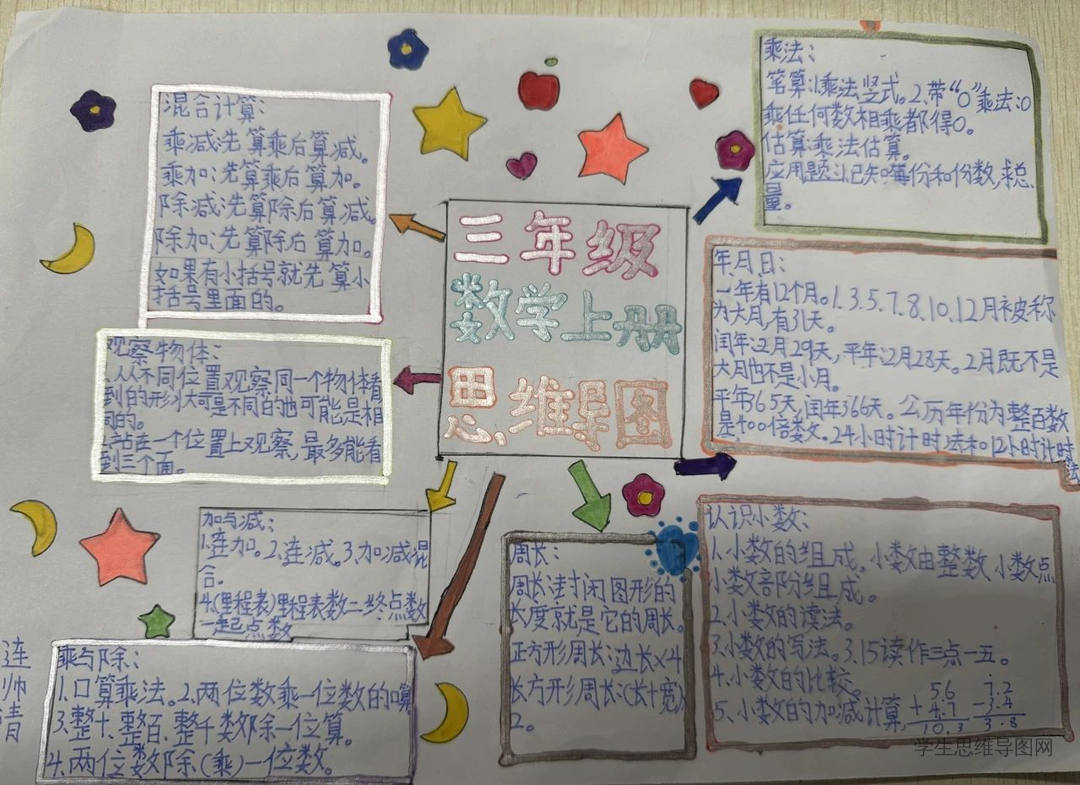 三年级
数学上册
思维导图
混合计算:
乘减:先算乘后算减。
乘加:先算乘后算加。
除减:先算除后算减。
除加:先算除后算加。
如果有小括号就先算小
括号里面的。
观察物体:
1.从不同位置观察同一个物体看
到的形状可能是不同的也可能是相
同的。
2.站在一个位置上观察,最多能看
到三个面。
加与减:
1.连加。2.连减。3.加减混
合.
4.(里程表)里程表数=终点数
一起点数
乘与除:
1.口算乘法。2.两位数乘一位数的口算
3.整十、整百.整千数除一位算。
4.两位数除(乘)一位数。
周长:
周长:封闭图形的
长度就是它的周长。
正方形周长:边长×4
长方形周长:(长+宽)
2。
乘法:
笔算:1.乘法竖式。2.带“0”乘法:0
乘任何数相乘都得0。
估算:乘法估算。
应用题:1.已知每份和份数,求总
量。
年月日:
一年有12个月。1.3.5.7.8.10.12月被称
为大月,有31天。
闰年:2月29天,平年:2月28天。2月既不是
大月也不是小月。
平年365天,闰年366天。公历年份为整百数
是400倍数.24小时计时法和12小时计时
法
认识小数:
1.小数的组成,小数由整数、小数点
小数部分组成。
2.小数的读法。
3.小数的写法。3.15读作三点一五。
4.小数的比较。
5、小数的加减计算,
5.6
+4.7
10.3
7.2
-3.4
3.8
连
帅
清
学生思维导图网